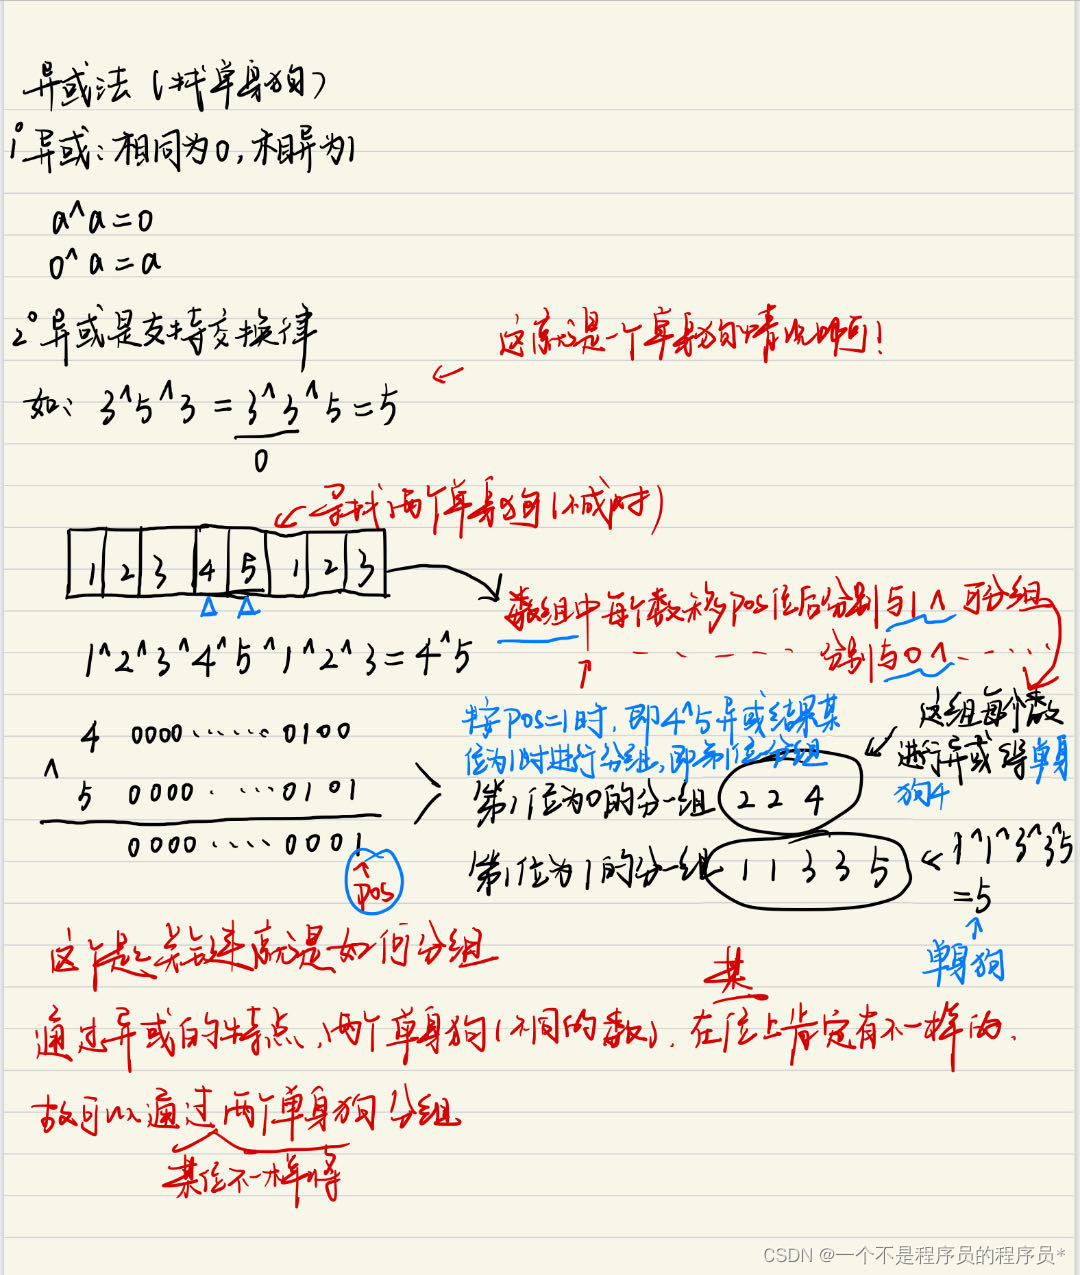 异或法（找单身狗）
1° 异或：相同为0，相异为1
a^a=0
0^a=a
2° 异或是支持交换律
这就是一个单身狗情况即可！
如：3^5^3 = 3^3^5=5
0
寻找两个单身狗（不成对）
1 2 3 4 5 1 2 3
数组中每个数移pos位后分别与1^可分组
分别与0^
1^2^3^4^5^1^2^3=4^5
4 0000······0100
^
5 0000·····0101
0000····0001
pos
按pos=1时，即4^5异或结果某
位为1时进行分组，即第1位分组
第1位为0的分一组 2 2 4
这组每个数
进行异或得单身
狗4
第1位为1的分一组 1 1 3 3 5
1^1^3^3^5
=5
单身狗
这个题关键就是如何分组
某
通过异或的特点，两个单身狗（不同的数），在位上肯定有不一样的．
故可以通过两个单身狗分组
某位不一样
CSDN @一个不是程序员的程序员*